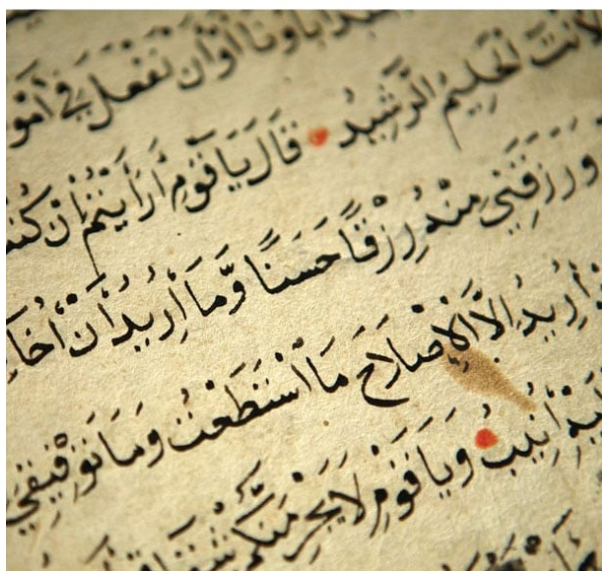 ءَابَاؤُنَا أَوْ أَنْ نَفْعَلَ فِي
لَأَنتَ الْحَلِيمُ الرَّشِيدُ قَالَ يَا قَوْمِ أَرَأَيْتُمْ إِنْ
وَرَزَقَنِي مِنْهُ رِزْقًا حَسَنًا وَّمَا أُرِيدُ أَنْ
أُرِيدُ إِلَّا الْإِصْلَاحَ مَا اسْتَطَعْتُ وَمَا تَوْفِيقِي
أُنِيبُ وَيَا قَوْمِ لَا يَجْرِمَنَّكُمْ